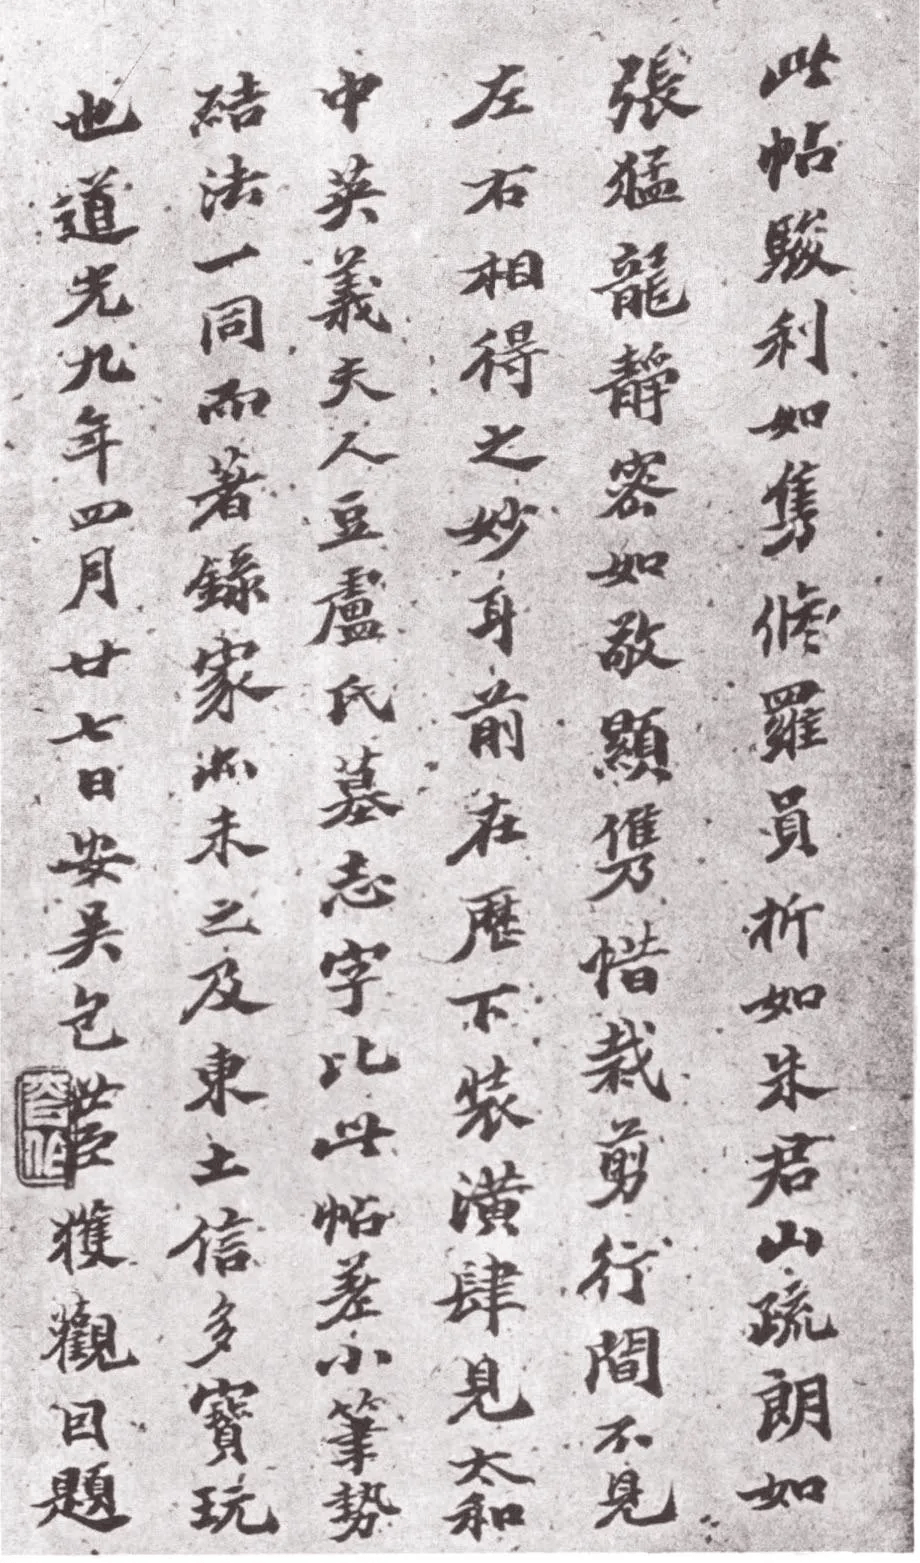 此帖駿利如雋脩羅員折如朱君山疏朗如
張猛龍靜密如敬顯儁惜裁剪行間不見
左右相得之妙耳前在歷下裝潢肆見太和
中英義夫人豆盧氏墓志字比此帖差小筆勢
結法一同而著錄家亦未之及東土信多寶玩
也道光九年四月廿七日安吳包世臣獲觀因題